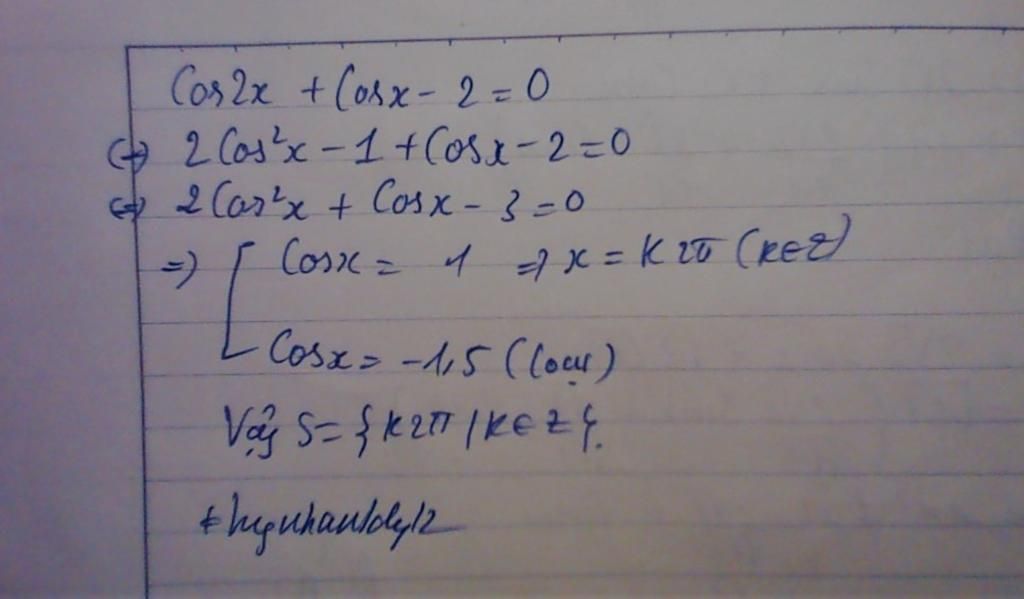 Cos2x + Cosx - 2 = 0
⇔ 2Cos²x - 1 + Cosx - 2 = 0
⇔ 2Cos²x + Cosx - 3 = 0
=> [ Cosx = 1 => x = k2π (k∈Z)
Cosx = -1,5 (loại)
Vậy S = {k2π / k∈Z}.